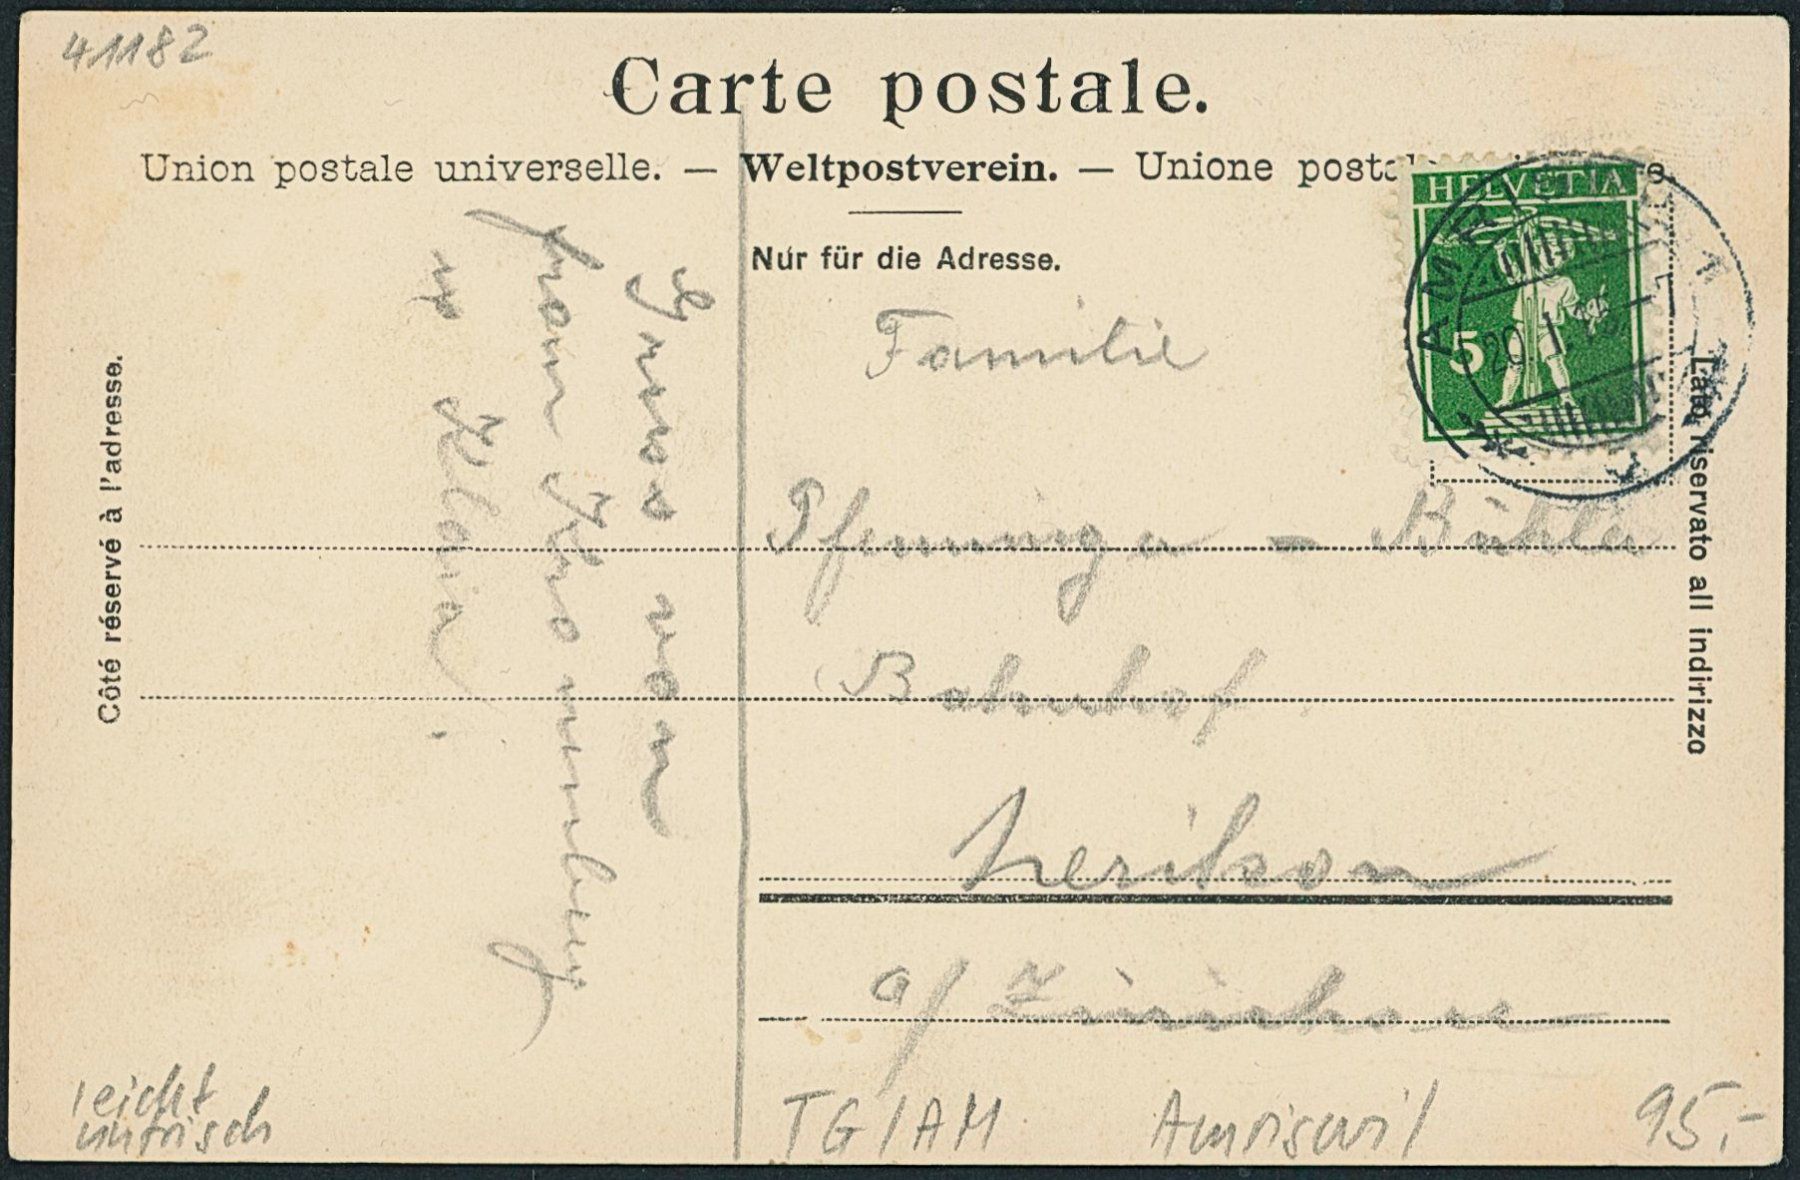 41182
Carte postale.
Union postale universelle. — Weltpostverein. — Unione
Nur für die Adresse.
HELVETIA
5
AMRISWIL
20. I.
Côté réservé à l'adresse.
Lato riservato all indirizzo
Gruss von
u Klara.
Familie
Pfenninger - Bühler
Bahnhof.
Uerikon
a/ Zürichsee
leicht
unfrisch
TG/AM Amriswil 95.-